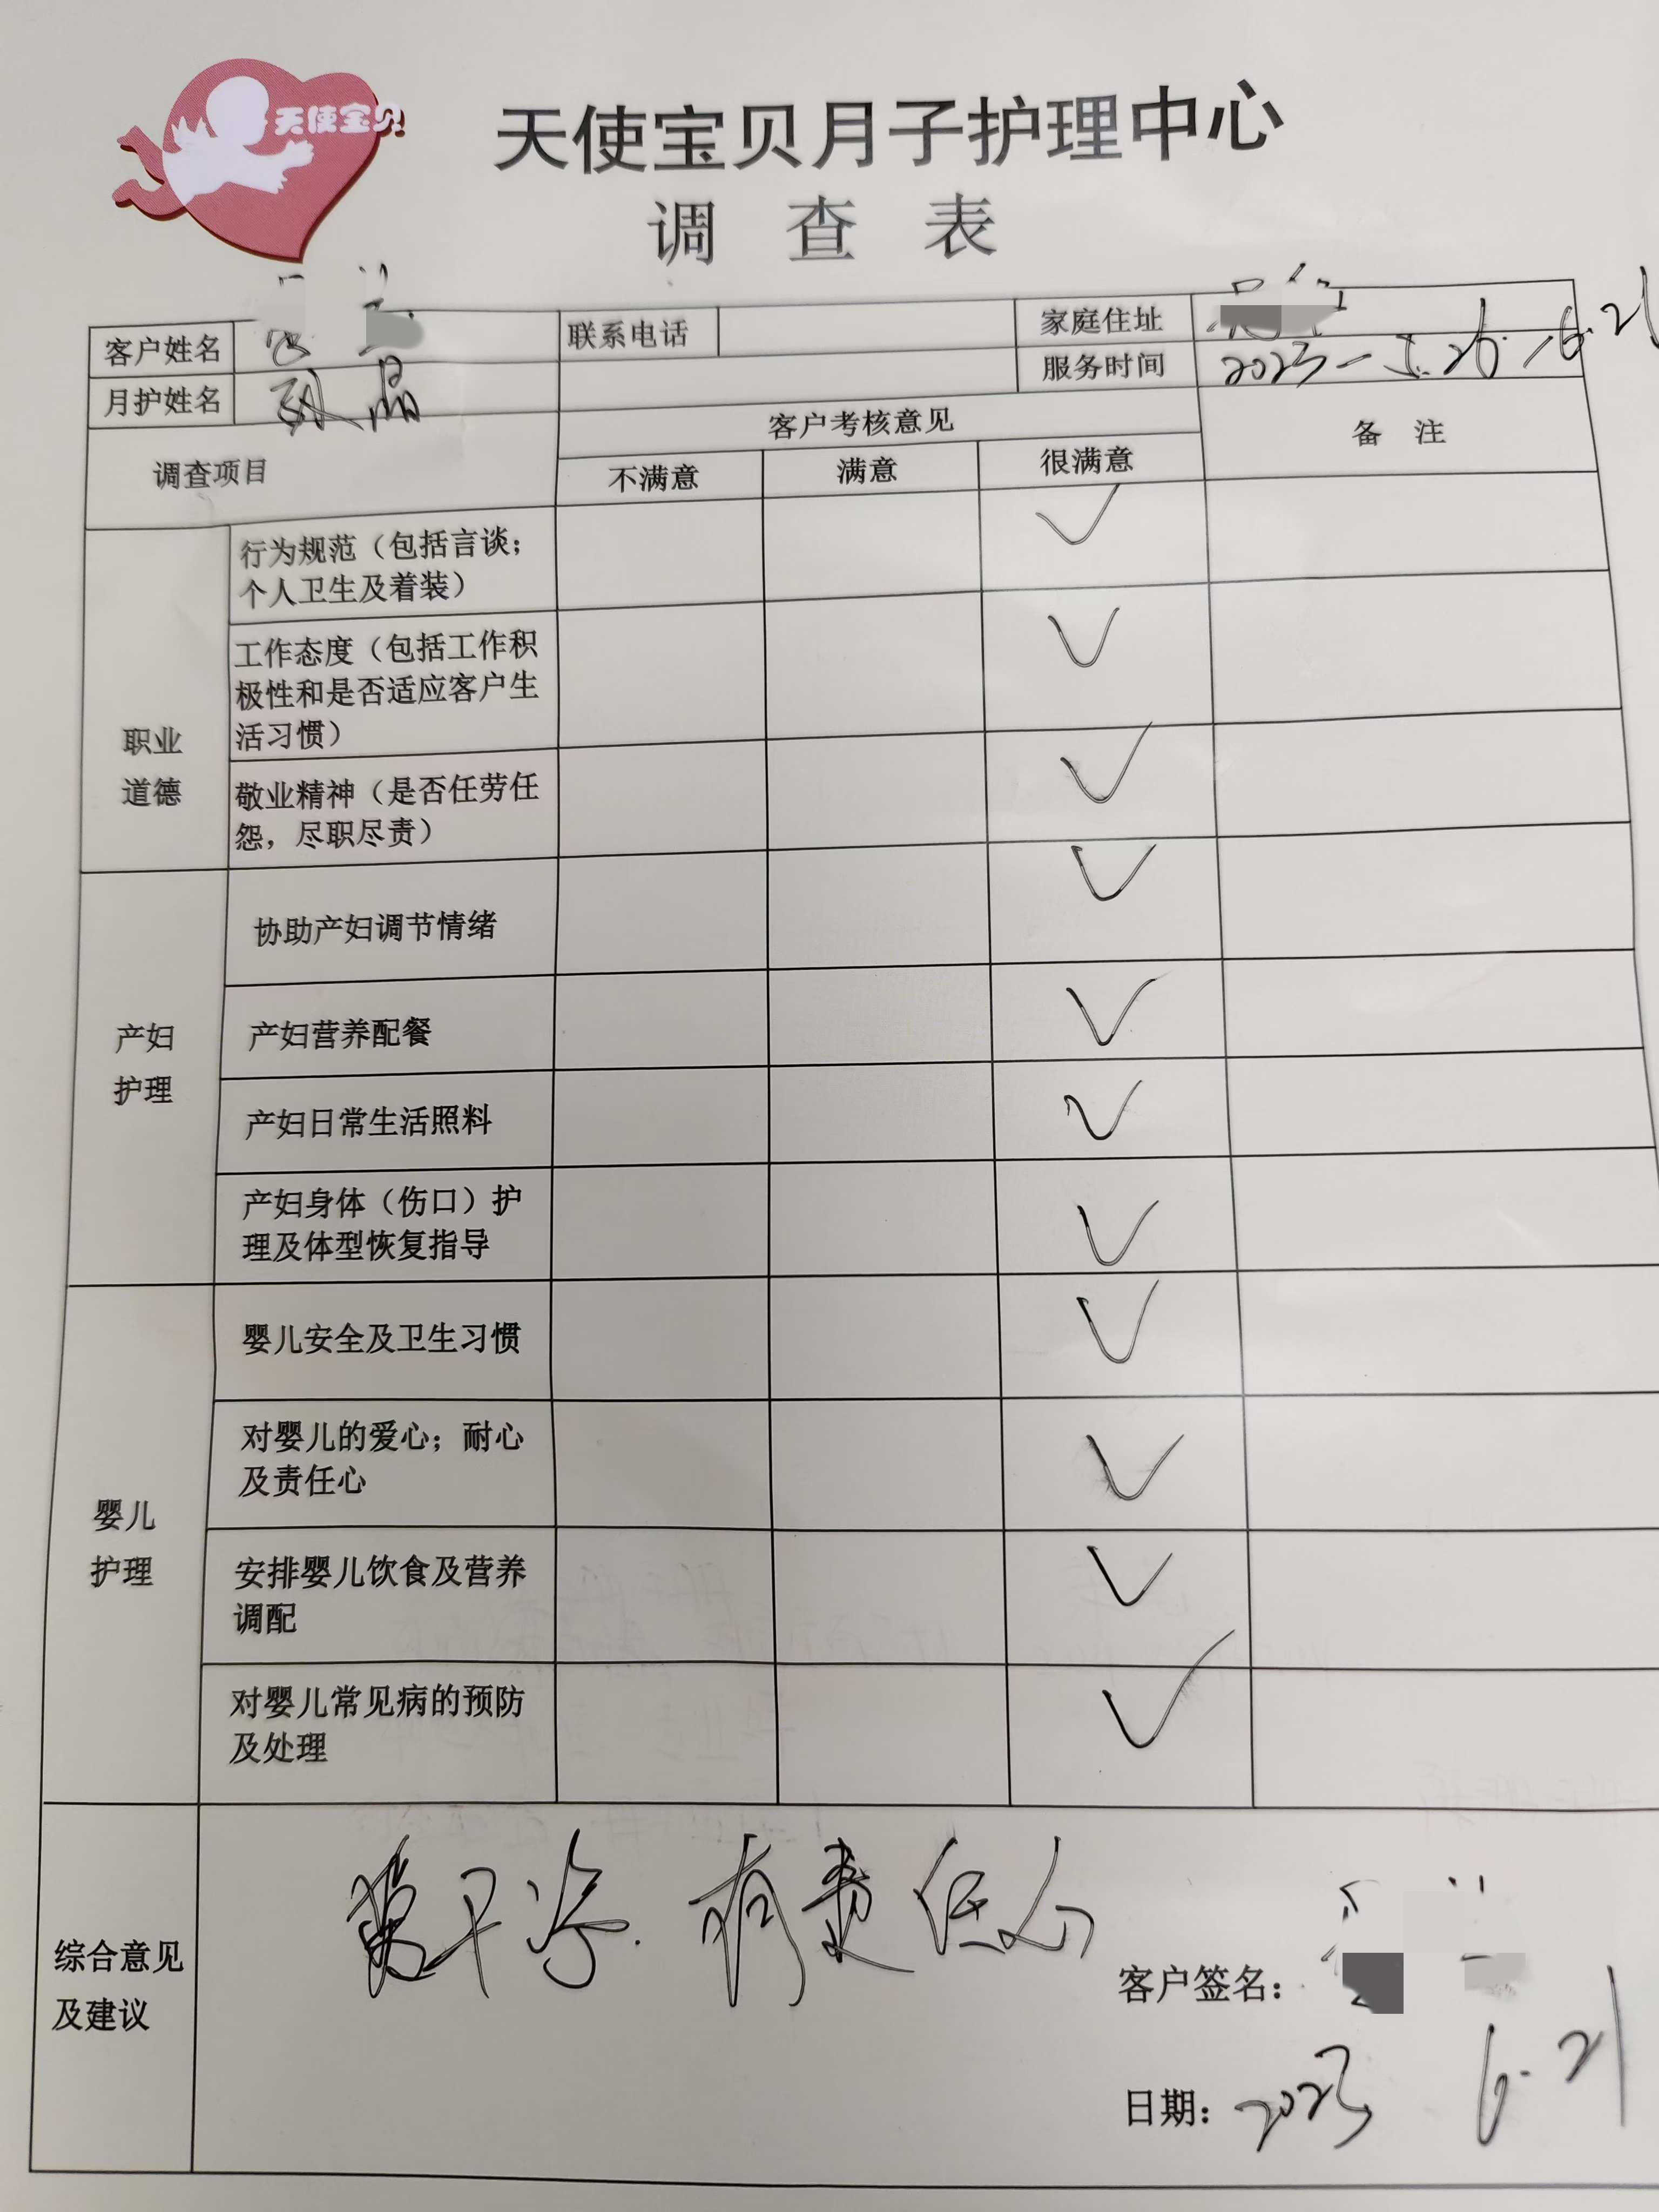 天使宝贝
天使宝贝月子护理中心
调 查 表
客户姓名 联系电话 家庭住址
月护姓名 晶 服务时间 2023-5.26-6.21
调查项目 客户考核意见 备 注
不满意 满意 很满意
职业
道德
行为规范（包括言谈；
个人卫生及着装）
工作态度（包括工作积
极性和是否适应客户生
活习惯）
敬业精神（是否任劳任
怨，尽职尽责）
产妇
护理
协助产妇调节情绪
产妇营养配餐
产妇日常生活照料
产妇身体（伤口）护
理及体型恢复指导
婴儿
护理
婴儿安全及卫生习惯
对婴儿的爱心；耐心
及责任心
安排婴儿饮食及营养
调配
对婴儿常见病的预防
及处理
综合意见
及建议
干净.有责任心
客户签名：
日期：2023 6.21